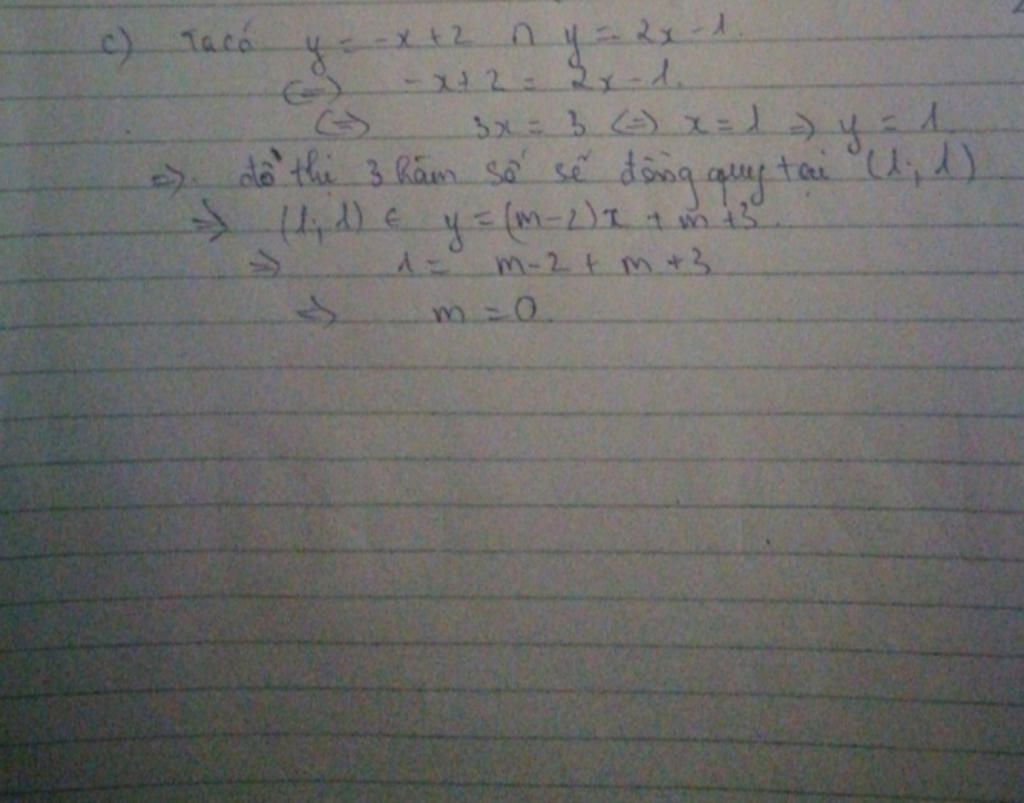 c) Ta có y = -x+2 ∩ y = 2x-1.
(=) -x+2 = 2x-1.
(=) 3x = 3 (=) x=1 => y = 1
=> đồ thi 3 hàm số sẽ đồng quy tại (1; 1)
=> (1; 1) ∈ y = (m-2)x + m +3.
=> 1 = m-2 + m +3
=> m = 0